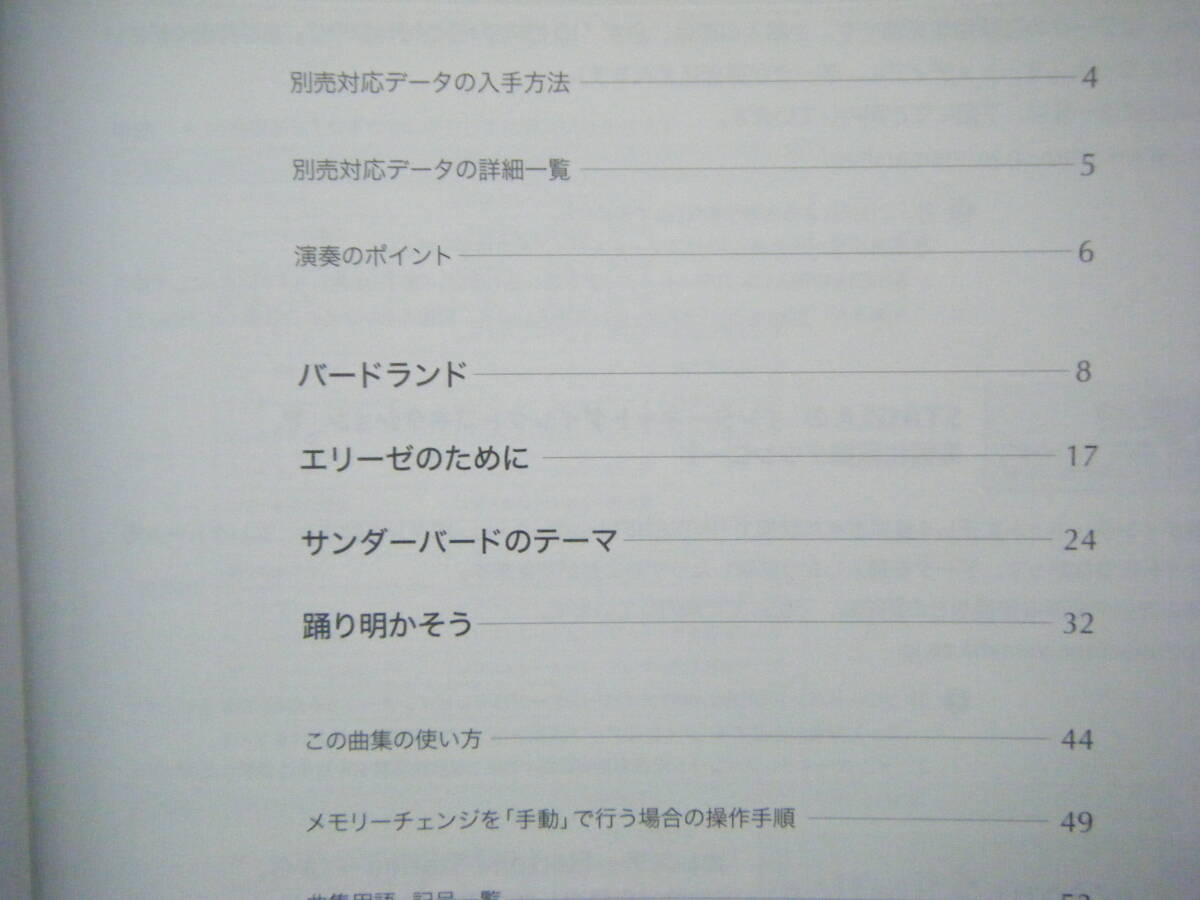 別売対応データの入手方法 4
別売対応データの詳細一覧 5
演奏のポイント 6
バードランド 8
エリーゼのために 17
サンダーバードのテーマ 24
踊り明かそう 32
この曲集の使い方 44
メモリーチェンジを「手動」で行う場合の操作手順 49